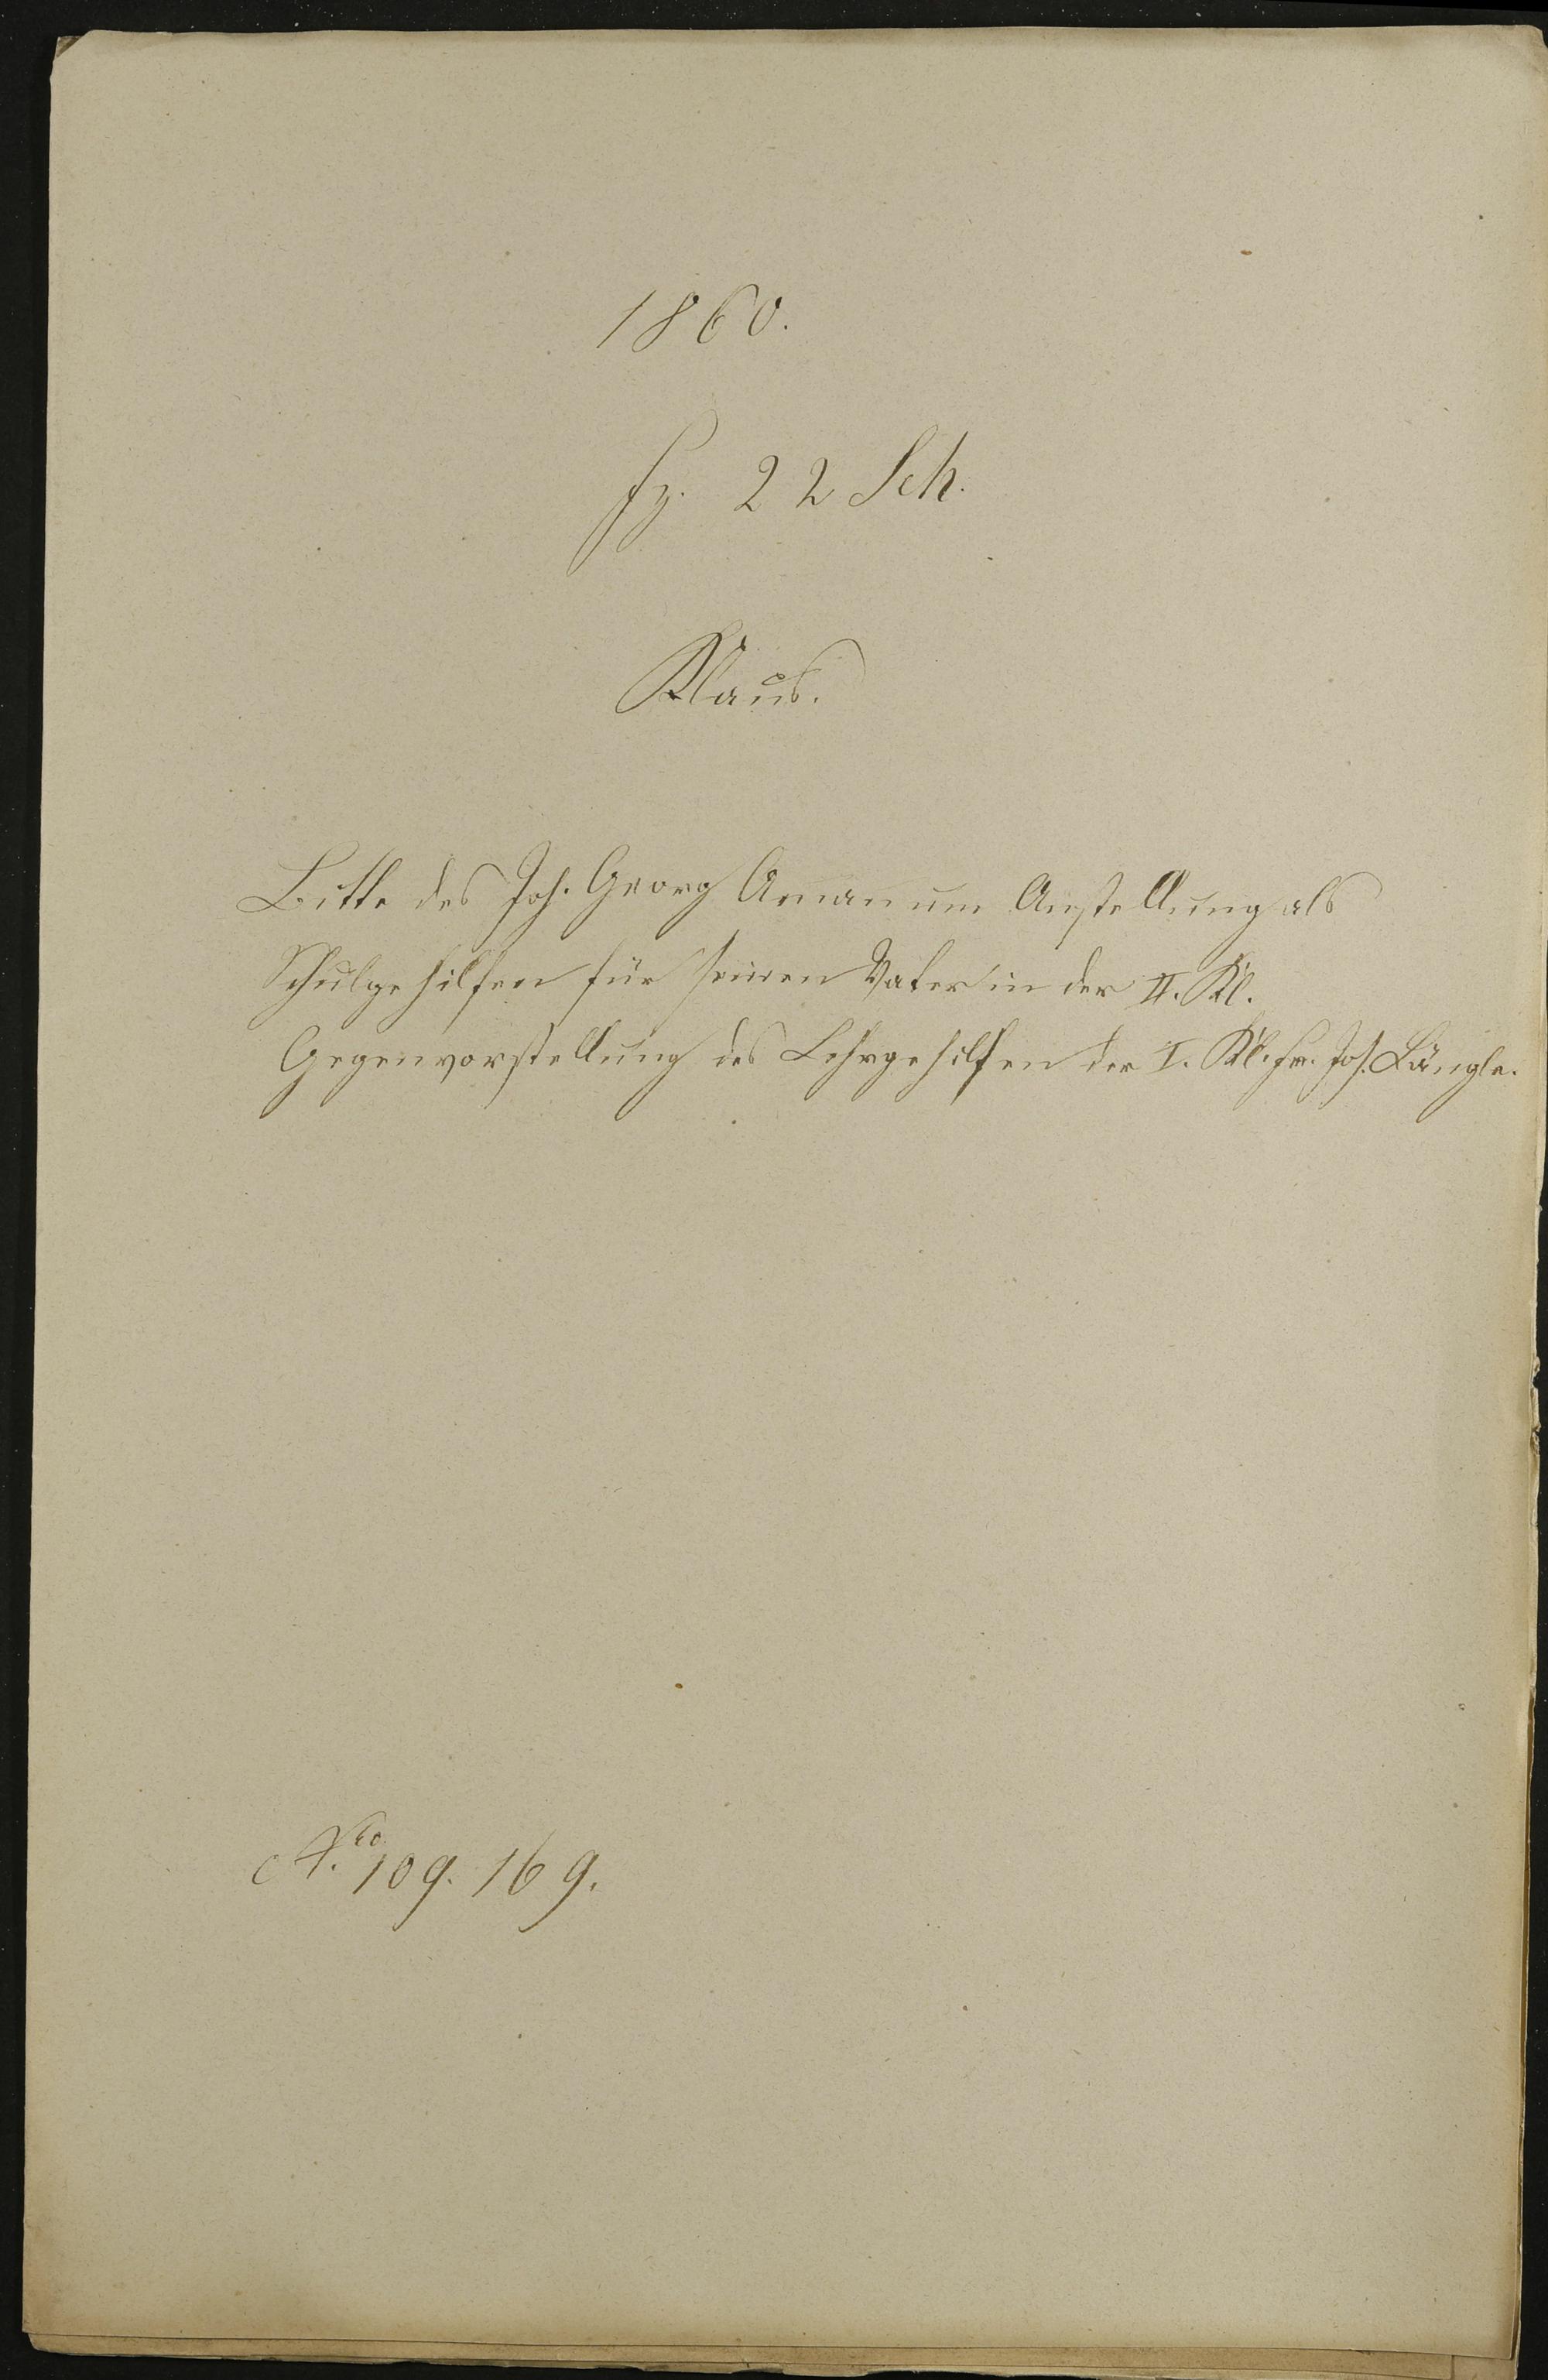 1860.
fz. 22 Sch.
Klaus.
Bitte des Joh. Georg Aman um Anstellung als
Schulgehilfen für seinen Vater in der II. Kl.
Gegenvorstellung des Lehrgehilfen der I. Kl. Fr. Jos. Längle.
No 109. 169.